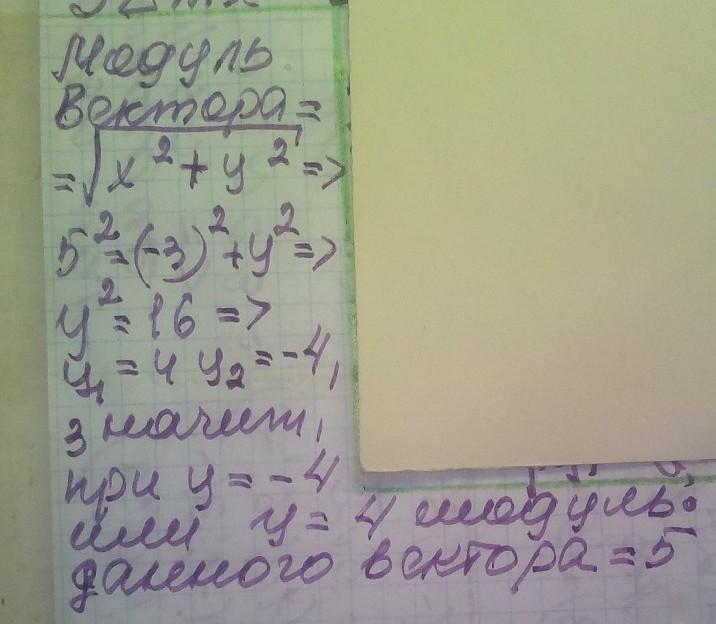 Модуль
вектора =
= √x² + y² =>
5² = (-3)² + y² =>
y² = 16 =>
y₁ = 4 y₂ = -4,
значит,
при y = -4
или y = 4 модуль
данного вектора = 5